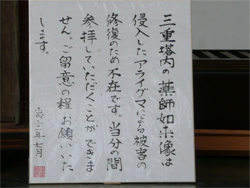 三重塔内の薬師如来像は
侵入したアライグマによる被害の
修復のため不在です。当分の間
参拝していただくことができま
せん。ご留意の程お願いいた
します。